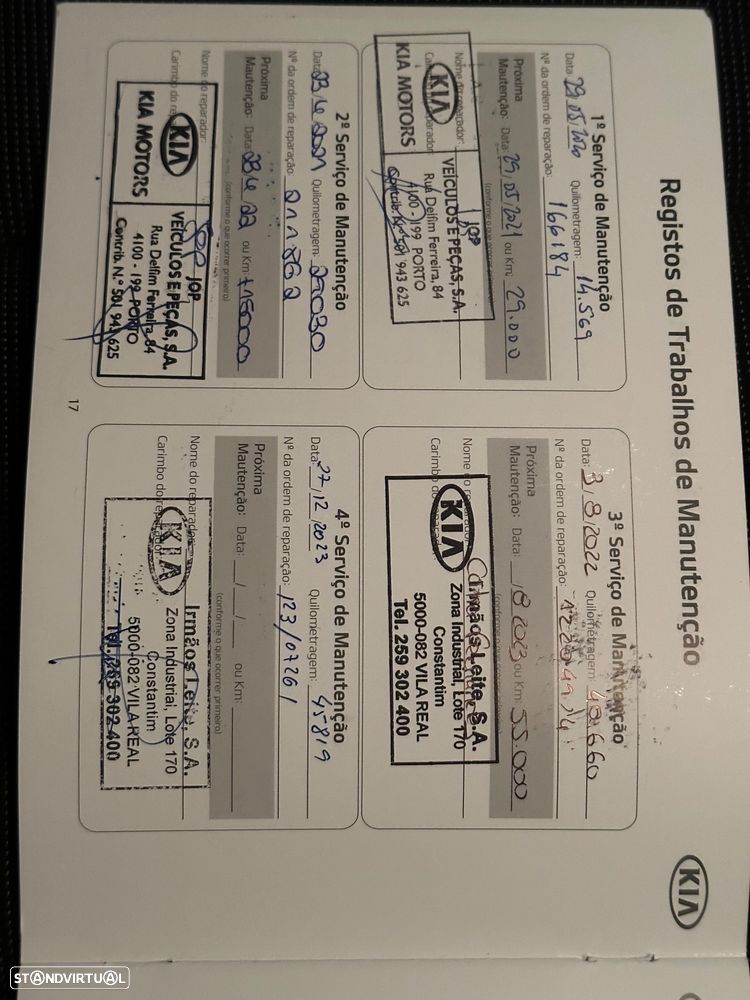 Registos de Trabalhos de Manutenção
KIA
1º Serviço de Manutenção
Data: 29/05/2020 Quilometragem: 14.569
Nº da ordem de reparação: 166184
Próxima
Mautenção: Data: 29/05/2021 ou Km: 29.000
(conforme o que ocorrer primeiro)
Nome do reparador:
KIA
KIA MOTORS
JOP
VEÍCULOS E PEÇAS, S.A.
Rua Delfim Ferreira, 84
4100 - 199 PORTO
Contrib. N.º 501 943 625
2º Serviço de Manutenção
Data: 23/6/2021 Quilometragem: 27030
Nº da ordem de reparação: 211862
Próxima
Mautenção: Data: 23/6/22 ou Km: +15000
(conforme o que ocorrer primeiro)
Nome do reparador:
Carimbo do
KIA
KIA MOTORS
JOP
VEÍCULOS E PEÇAS, S.A.
Rua Delfim Ferreira, 84
4100 - 199 PORTO
Contrib. N.º 501 943 625
3º Serviço de Manutenção
Data: 3/8/2022 Quilometragem: 40.660
Nº da ordem de reparação:
Próxima
Mautenção: Data: /8/2023 ou Km: 55.000
(conforme o que ocorrer primeiro)
Nome do reparador:
Carimbo do
KIA
Irmãos Leite, S.A.
Zona Industrial, Lote 170
Constantim
5000-082 VILA REAL
Tel. 259 302 400
4º Serviço de Manutenção
Data: 27/12/2023 Quilometragem: 45819
Nº da ordem de reparação: 123/07261
Próxima
Mautenção: Data: __/__/__ ou Km:
(conforme o que ocorrer primeiro)
Nome do reparador:
Carimbo do reparador:
KIA
Irmãos Leite, S.A.
Zona Industrial, Lote 170
Constantim
5000-082 VILA REAL
Tel. 259 302 400
17
STANDVIRTUAL